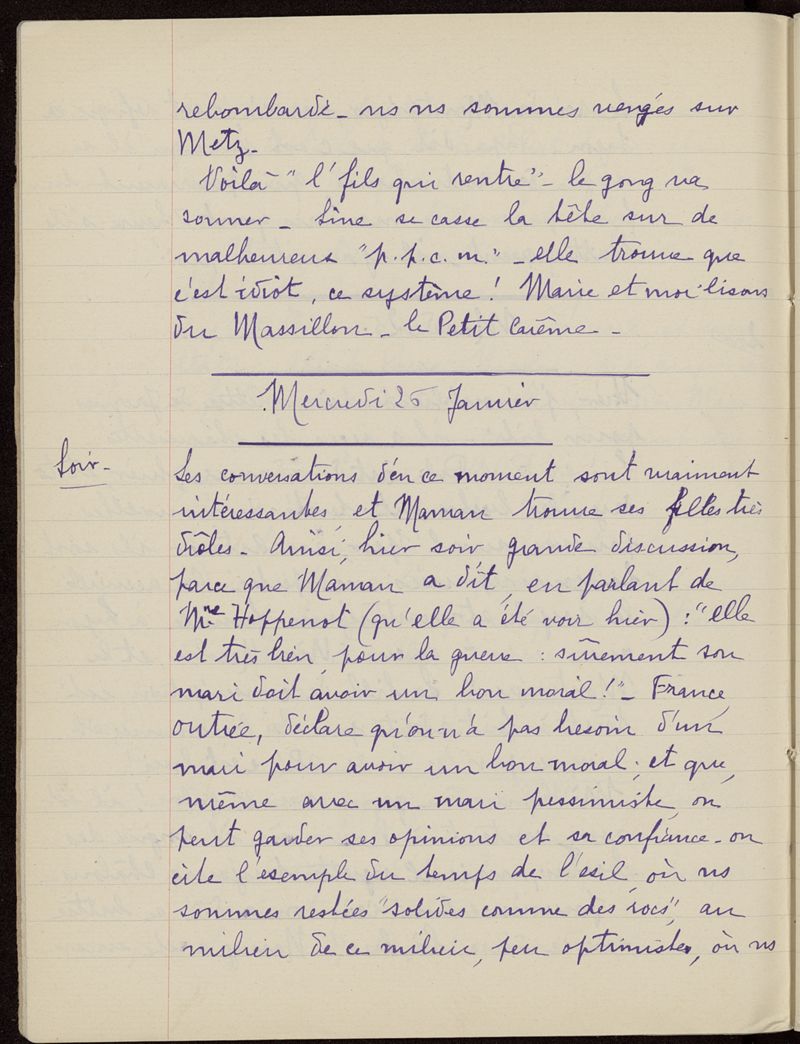 rebombardé - ns ns sommes vengés sur
Metz -
Voilà "l'fils qui rentre" - le gong va
sonner - Line se casse la tête sur de
malheureux "p.p.c.m." - elle trouve que
c'est idiot, ce système ! Marie et moi lisons
du Massillon - le Petit Carême -
Mercredi 26 Janvier
Soir -
Les conversations d'en ce moment sont vraiment
intéressantes et Maman trouve ses filles très
drôles - Ainsi, hier soir grande discussion,
parce que Maman a dit, en parlant de
Mme Hoppenot (qu'elle a été voir hier) : "elle
est très bien, pour la guerre : sûrement son
mari doit avoir un bon moral !" - France,
outrée, déclare qu'on n'a pas besoin d'un
mari pour avoir un bon moral ; et que,
même avec un mari pessimiste, on
peut garder ses opinions et sa confiance - on
cite l'exemple du temps de l'exil, où ns
sommes restées "solides comme des rocs", au
milieu de ce milieu, peu optimiste, où ns